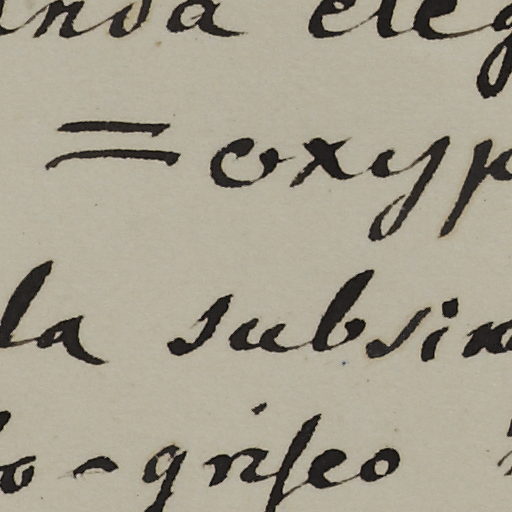 anda eleg
=oxyp
la subsin
o-griſeo